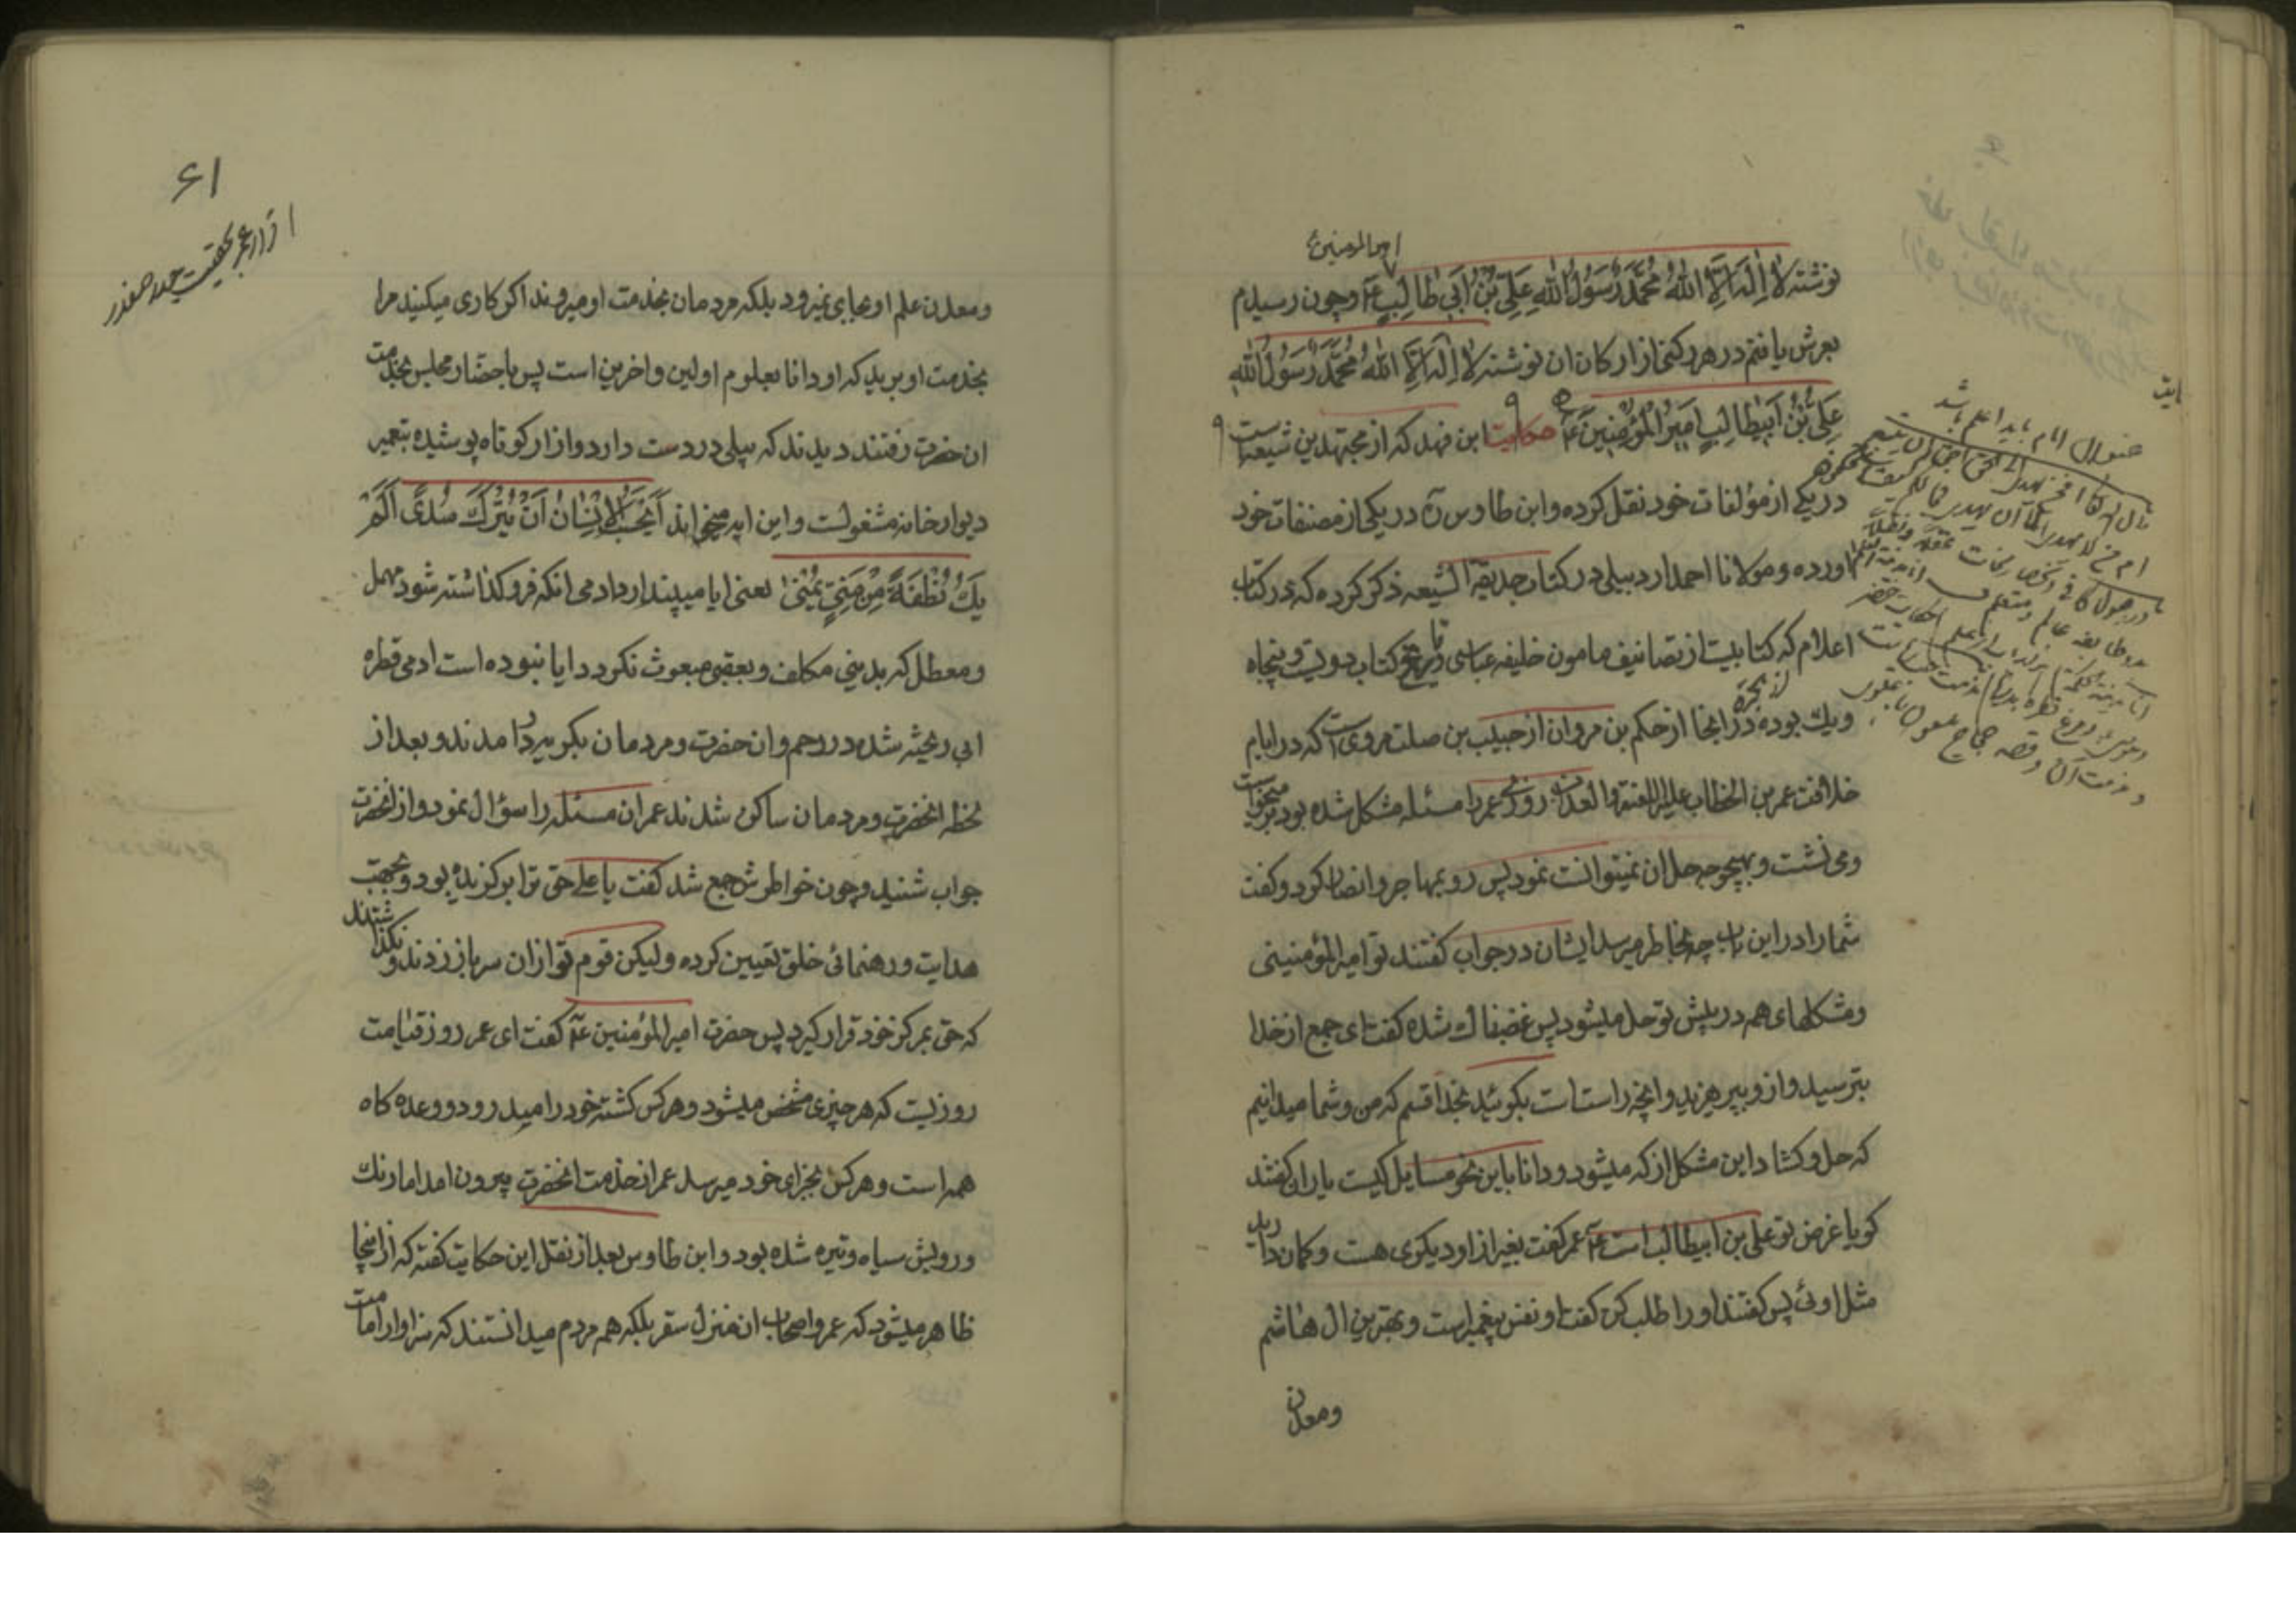 امیرالمؤمنین
نوشته لا اِلٰهَ اِلَّا اللهُ مُحَمَّدٌ رَسُولُ اللهِ عَلِیُّ بْنُ اَبی طالِبٍ ع و چون رسیدم
بعرش یافتم در هر رکنی از ارکان ان نوشته لا اِلٰهَ اِلَّا اللهُ مُحَمَّدٌ رَسُولُ اللهِ
عَلِیُّ بْنُ اَبیطالِبٍ اَمیرُ الْمُؤْمِنینَ ع حکایت ابن فهد که از مجتهدین شیعه است
در یکی از مؤلفات خود نقل کرده و ابن طاوس ره در یکی از مصنفات خود
اورده و مولانا احمد اردبیلی در کتاب حدیقة الشیعه ذکر کرده که در کتاب
اعلام که کتابیست از تصانیف مامون خلیفه عباسی و تاریخ کتاب دویست و پنجاه
ویک بوده در انجا از حکم بن مروان از حبیب بن صلت مرویست که در ایام
خلافت عمر بن الخطاب علیه اللعنة و العذاب روزی عمر را مسئله مشکل شده بود برمیخواست
و می نشست و بهیچوجه حل ان نمیتوانست نمود پس رو بمهاجر و انصار کرد و گفت
شما را در این باب چه بخاطر میرسد ایشان در جواب گفتند تو امیرالمؤمنینی
و مشکلهای همه در پیش تو حل میشود پس غضبناک شده گفت ای جمع از خدا
بترسید و از و بپرهیزید و انچه راست است بگوئید بخدا قسم که من و شما میدانیم
که حل و گشاد این مشکل از که میشود و دانا باین نحو مسایل کیست یاران گفتند
گویا غرض تو علی بن ابیطالب است ع عمر گفت بغیر از او دیگری هست و گمان دارید
مثل اوئی پس گفتند او را طلب کن گفت او نفس پیغمبر است و بهترین ال هاشم
ومعدن
۶۱
و معدن علم او بجایی نمیرود بلکه مردمان بخدمت او میروند اگر کاری میکنید مرا
بخدمت او برید که او دانا بعلوم اولین و اخرین است پس باحضار مجلس بخدمت
ان حضرت رفتند دیدند که بیلی در دست دارد و ازار کوتاه پوشیده بتعمیر
دیوار خانه مشغولست و این ایه میخواند اَیَحْسَبُ الْاِنْسَانُ اَنْ یُتْرَکَ سُدًی اَلَمْ
یَکُ نُطْفَةً مِنْ مَنِیٍّ یُمْنیٰ یعنی ایا میپندارد ادمی انکه فرو گذاشته شود مهمل
و معطل که بدینی مکلف و بعقبی مبعوث نگردد ایا نبوده است ادمی قطره
ابی ریخته شده در رحم و ان حضرت و مردمان بگریه در امدند و بعد از
لحظه انحضرت و مردمان ساکن شدند عمر ان مسئله را سؤال نمود و از انحضرت
جواب شنید و چون خواطرش جمع شد گفت یا علی حق ترا برگزیده بود و بجهت
هدایت و رهنمائی خلق تعیین کرده ولیکن قوم تو از ان سر باز زدند و نگذاشتند
که حق بمرکز خود قرار گیرد پس حضرت امیرالمؤمنین ع گفت ای عمر روز قیامت
روزیست که هر چیزی مشخص میشود و هر کس کشته خود را میدرود و وعده گاه
همه است و هر کس بجزای خود میرسد عمر از خدمت انحضرت بیرون امد اما رنگ
و رویش سیاه و تیره شده بود و ابن طاوس بعد از نقل این حکایت گفته که از اینجا
ظاهر میشود که عمر و اصحاب ان منزل سقر بلکه همه مردم میدانستند که سزاوار امامت